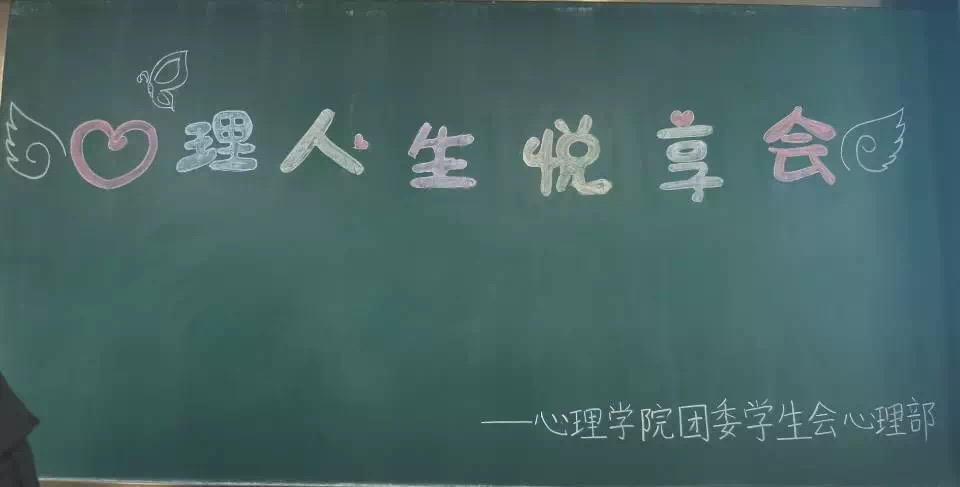 理人生悦享会
——心理学院团委学生会心理部